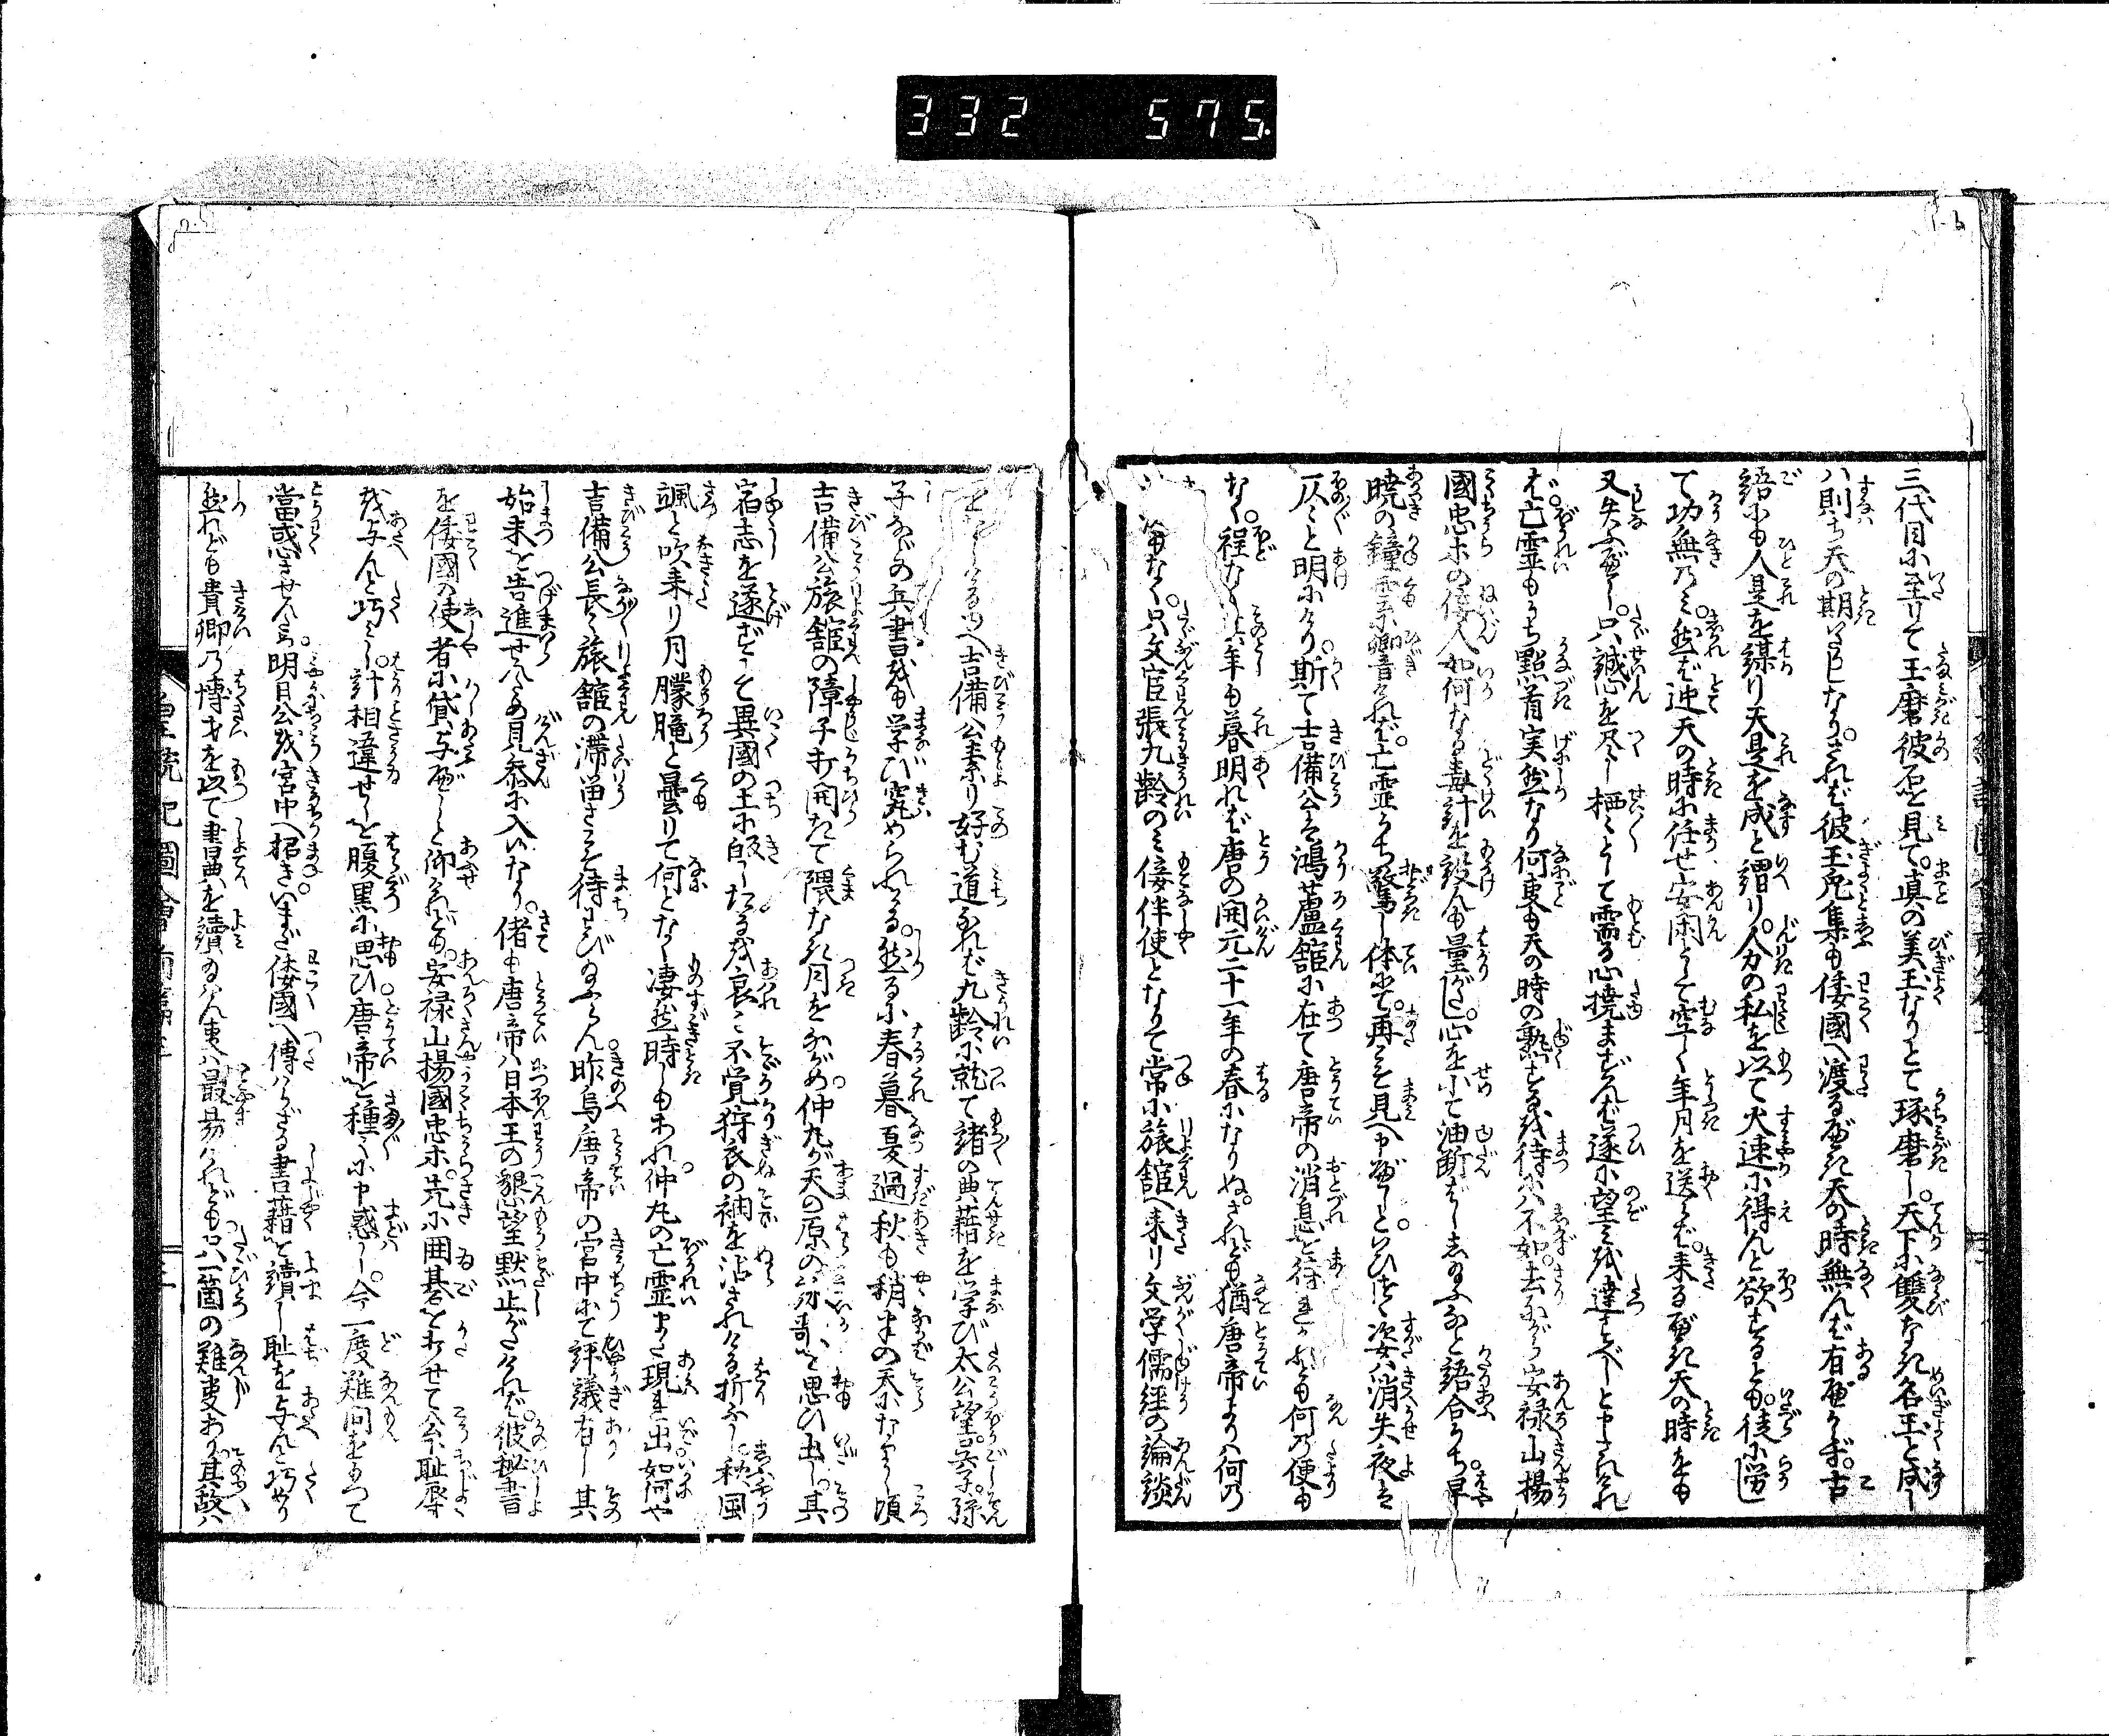 332 575
三代目に至りて王磨彼石を見て。真の美玉なりとて琢磨し。天下に雙なき名玉と成し
ハ則ち天の期いたしなり。されば彼玉兎集も倭國へ渡るべき天の時無んば有べからず。古
語にも人是を謀り天是を成と謂り。人力の私を以て火速に得んと欲するとも。徒に労し
て功無のミ。然ば迚天の時に任せ安閑として空しく年月を送らば。来るべき天の時をも
又失ふべし。只誠心を尽し栖々として需る心撓まずんば遂に望ミを達すべしと申されけれ
ば。亡霊もうち點首実然なり何事も天の時の熟するを待にハ不如。去ながら安禄山揚
國忠等の侫人如何なる毒計を設んも量がたし。心を小て油断ばし志給ふなと語合うち。早
暁の鐘聲響けれバ。亡霊うち驚し体にて。再こそ見へ申べしと。いひつゝ姿ハ消失夜も
仄々と明にけり。斯て吉備公ハ鴻蘆舘に在て唐帝の消息を待れけれども何の便も
なく。程なく其年も暮明れば唐の開元二十一年の春になりぬ。されども猶唐帝よりハ何の
沙汰もなく。只文官張九齢のミ接伴使となりて常に旅舘へ来り文学儒経の論談
吉備公素より好む道なれば九齢に就て諸の典籍を学び太公望。呉子。孫
子などの兵書をも学び究められける。然るに春暮夏過秋も稍半の天になりし頃
吉備公旅舘の障子打開きて隈なき月をながめ。仲丸が天の原の詠哥を思ひ出し。其
宿志を遂ずして異國の土に皈したるを哀ミ不覚狩衣の袖を沾されける折ふし。秋風
颯と吹来り月朦朧と曇りて何となく凄然時しもあれ。仲丸の亡霊また現れ出如何や
吉備公長々旅舘の滞留さこそ待わび給ふらん。昨烏唐帝の宮中にて評議有し其
始末を告進せんため見参に入いなり。偖も唐帝ハ日本王の懇望黙止がたければ。彼秘書
を倭國の使者に貸与べしと仰けれども。安禄山揚國忠等。先に囲碁を打せて公に耻辱
を与んと巧ミし。計相違せしを腹黒に思ひ。唐帝を種々に申惑し。今一度難問をもつて
當惑させんため。明日公を宮中へ招き。いまだ倭國へ傳ハらざる書籍を讀し耻を与んと巧めり
然れども貴卿の博才を以て書典を讀給はん事ハ最易けれども。只一箇の難事あり其故ハ
皇統記圖會前篇